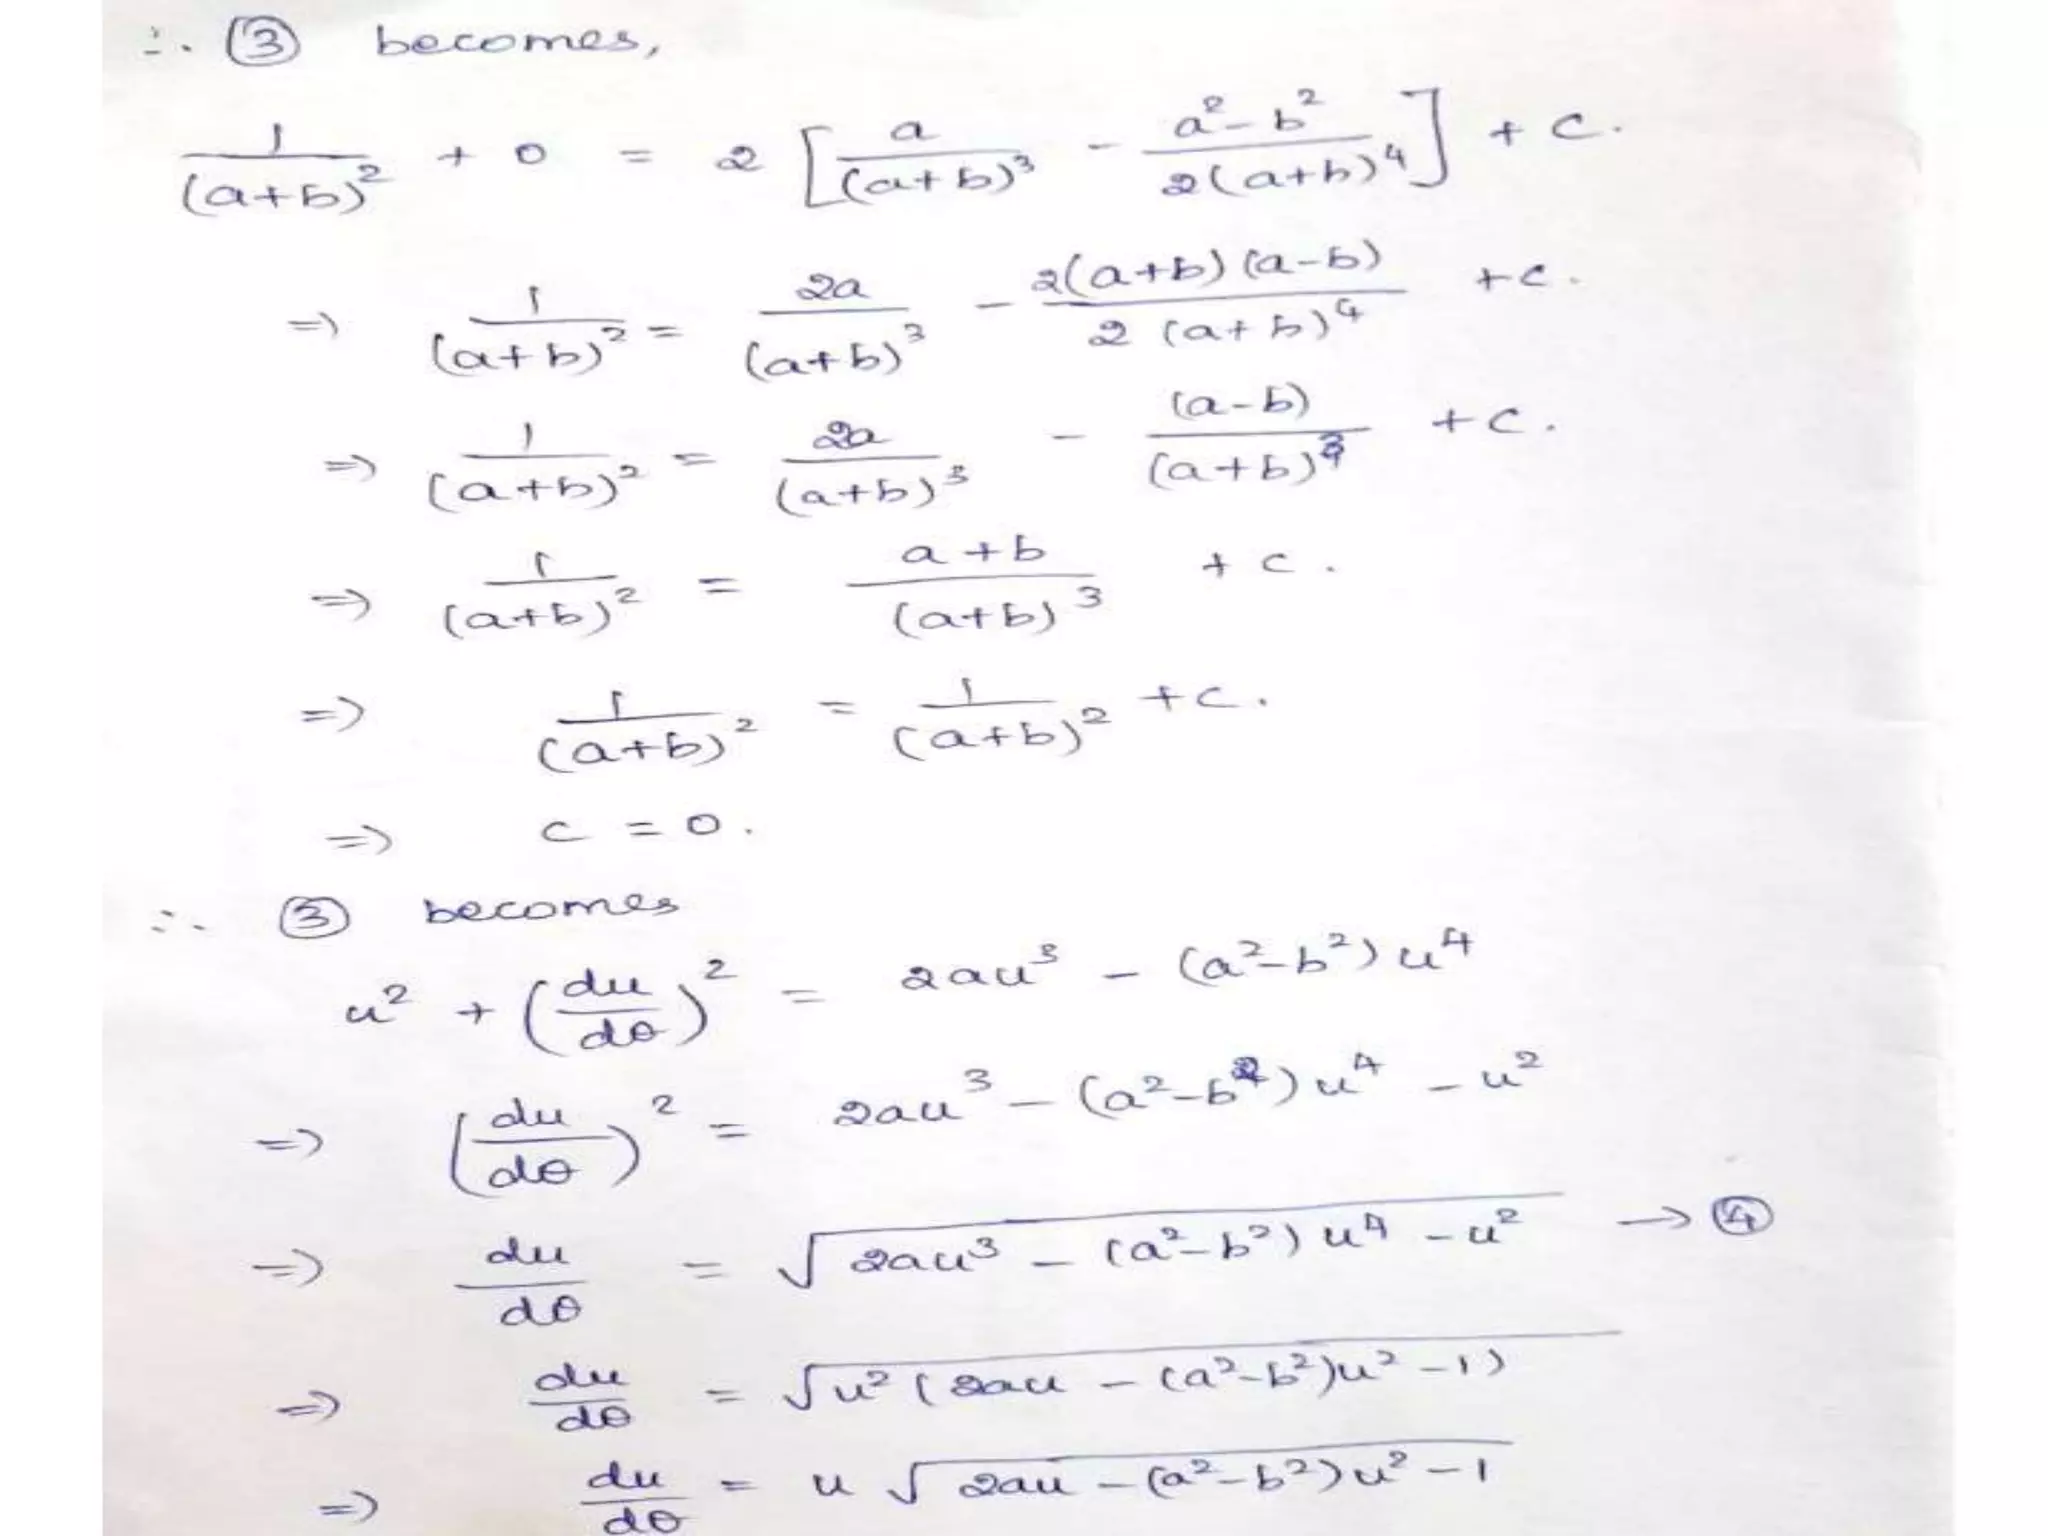 ∴ ③ becomes,
1/(a+b)² + 0 = 2 [a/(a+b)³ - (a²-b²)/2(a+b)⁴] + c.
⇒ 1/(a+b)² = 2a/(a+b)³ - 2(a+b)(a-b)/2(a+b)⁴ + c.
⇒ 1/(a+b)² = 2a/(a+b)³ - (a-b)/(a+b)³ + c.
⇒ 1/(a+b)² = a+b/(a+b)³ + c.
⇒ 1/(a+b)² = 1/(a+b)² + c.
⇒ c = 0.
∴ ③ becomes
u² + (du/dθ)² = 2au³ - (a²-b²)u⁴
⇒ (du/dθ)² = 2au³ - (a²-b²)u⁴ - u²
⇒ du/dθ = √(2au³ - (a²-b²)u⁴ - u²) → ④
⇒ du/dθ = √(u²(2au - (a²-b²)u² - 1))
⇒ du/dθ = u √(2au - (a²-b²)u² - 1)